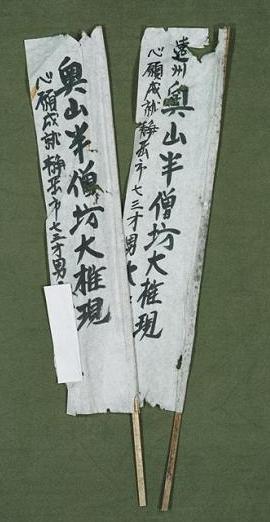 遠州 奥山半僧坊大権現
心願成就 静岡市 七三才男
奥山半僧坊大権現
心願成就 静岡市 七三才男